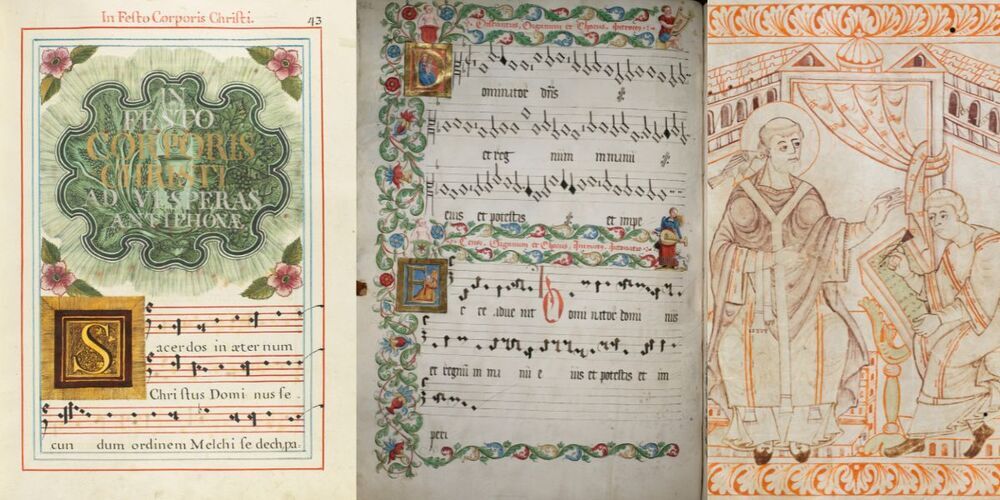 In Festo Corporis Christi.
43
IN
FESTO
CORPORIS
CHRISTI
AD VESPERAS
ANTIPHONÆ.
S
acerdos in æternum
Christus Dominus se-
cundum ordinem Melchisedech, pa-
ominator dñs
et reg num in manu
eius et potestas et impe
E ce adue nit Domi nator domi nus
et regnū in ma nu e ius et potestas et im
peri